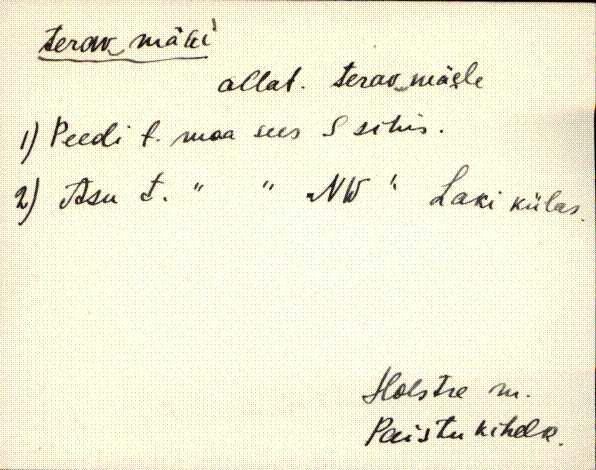 terav_mäǵi
allat. terav_mäele
1) Peedi t. maa sees S sihis.
2) Asu t. " " NW " Laki külas.
Holstre m.
Paistu kihelk.